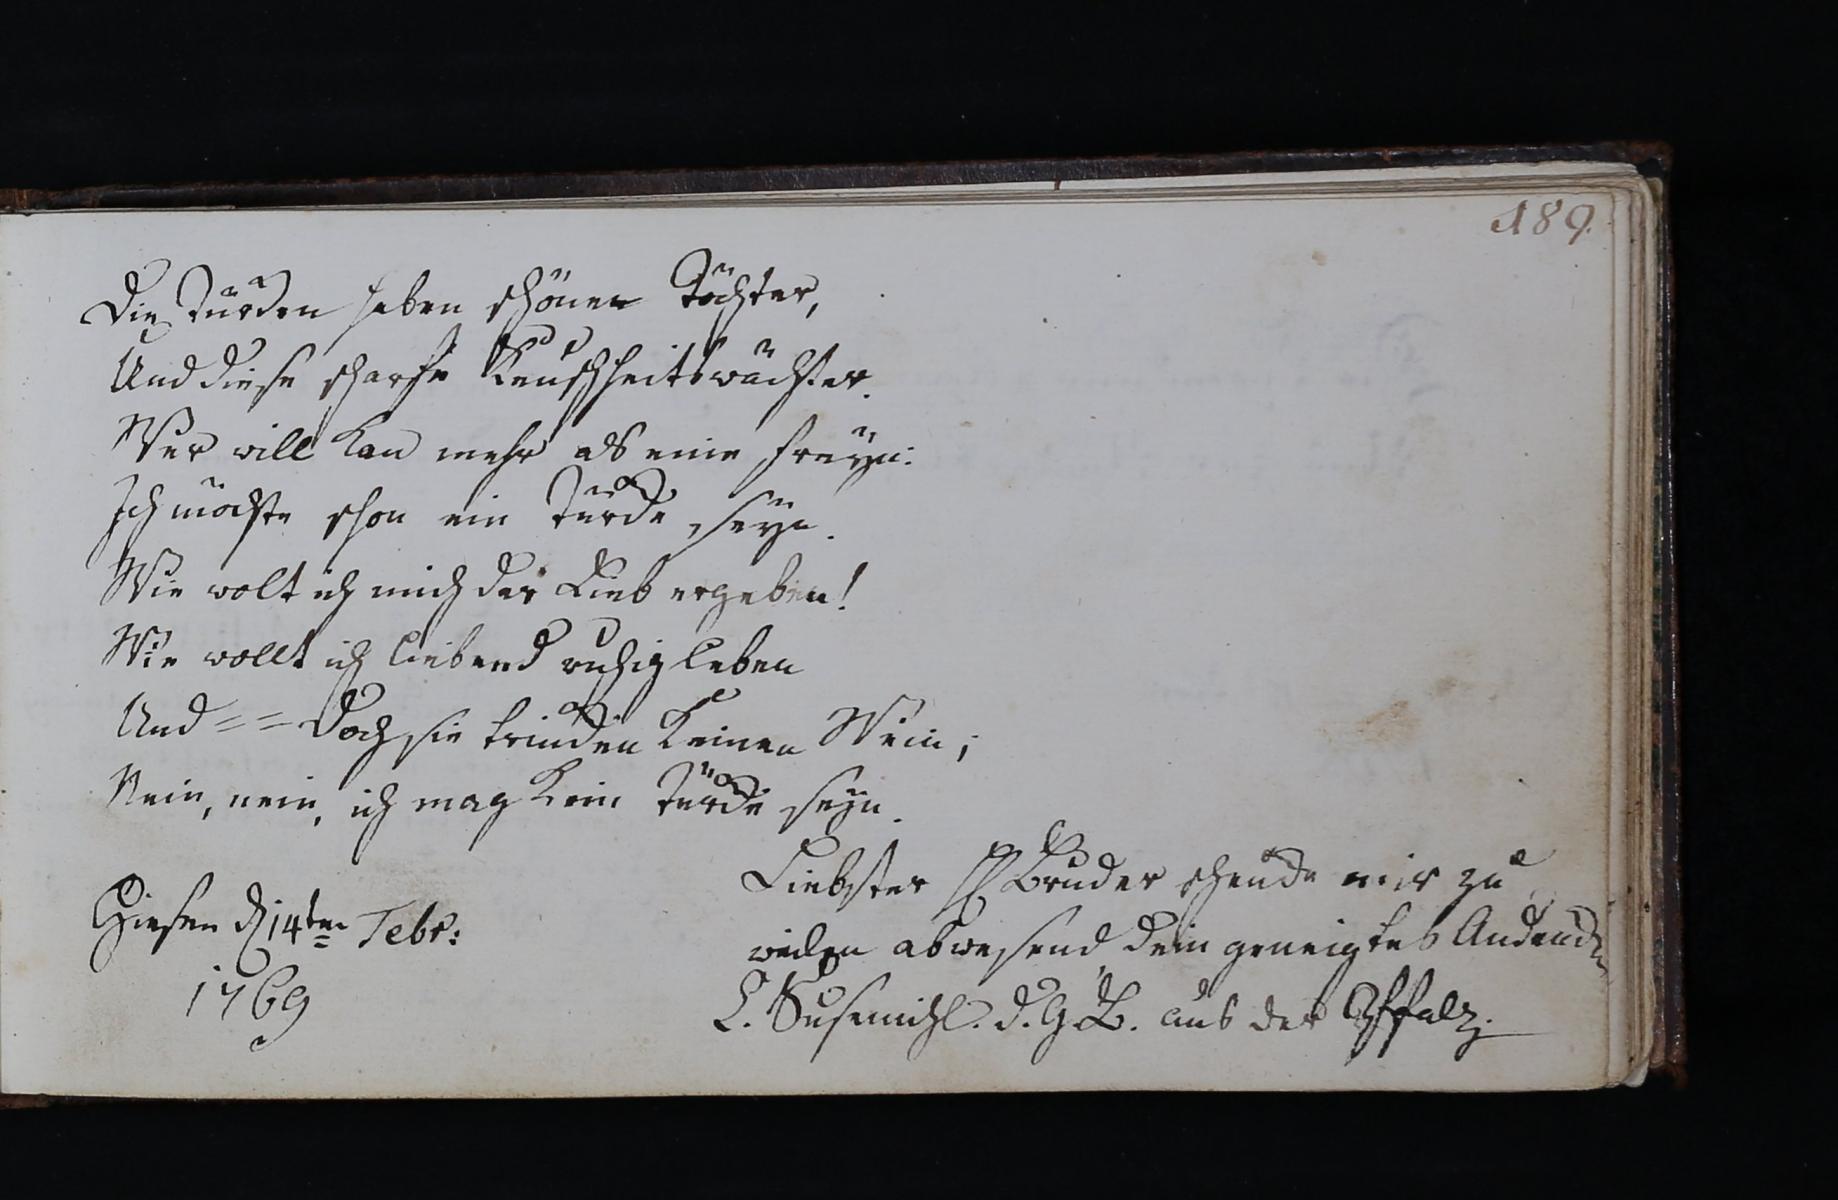 189.
Die Türcken haben schöne Töchter,
Und diese scharfe Keuschheitswächter.
Wer will kan mehr als eine freyn:
Ich möchte schon ein Türcke seyn.
Wie wolt ich mich der Lieb ergeben!
Wie wollt ich liebend ruhig leben
Und == Doch sie trincken keinen Wein;
Nein, nein, ich mag kein Türcke seyn.
Giesen d 14ten Febr:
1769
Liebster H Bruder schencke mir zu
weilen abwesend dein geneigtes Andencken
L. Susemihl. d. G. B. aus der Pfalz.